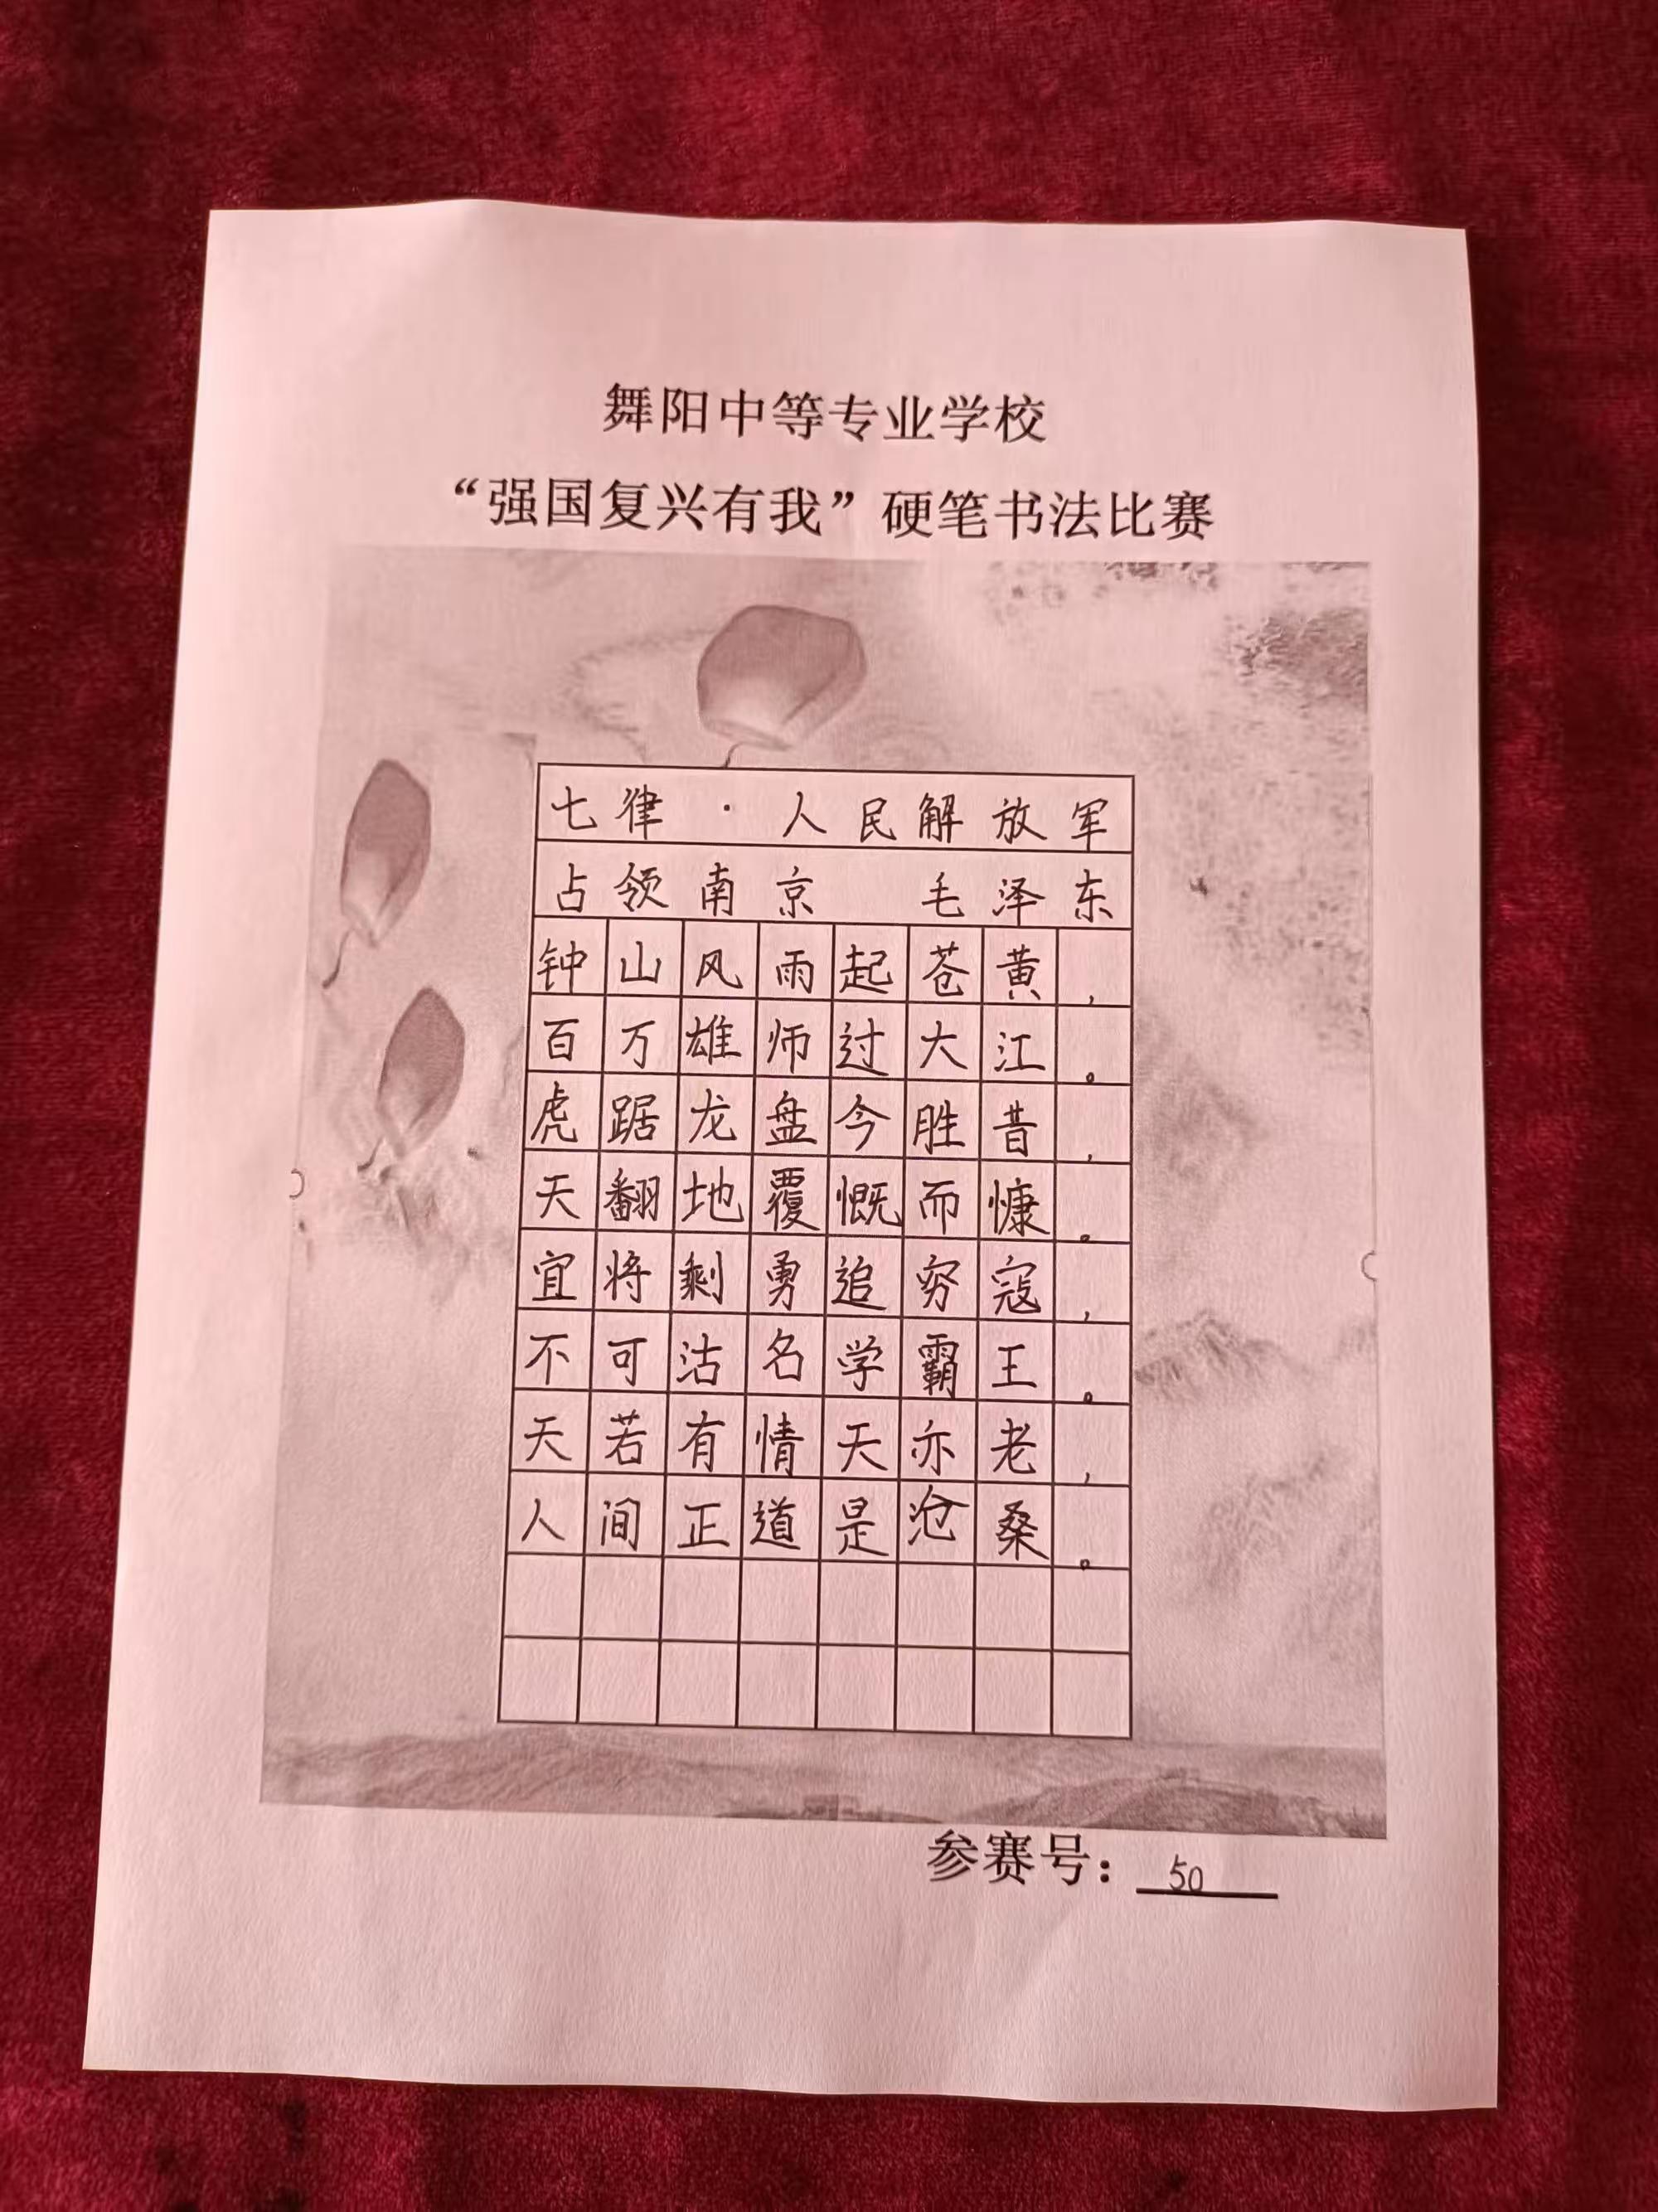 舞阳中等专业学校
“强国复兴有我”硬笔书法比赛
七律·人民解放军
占领南京 毛泽东
钟山风雨起苍黄，
百万雄师过大江。
虎踞龙盘今胜昔，
天翻地覆慨而慷。
宜将剩勇追穷寇，
不可沽名学霸王。
天若有情天亦老，
人间正道是沧桑。
参赛号：50